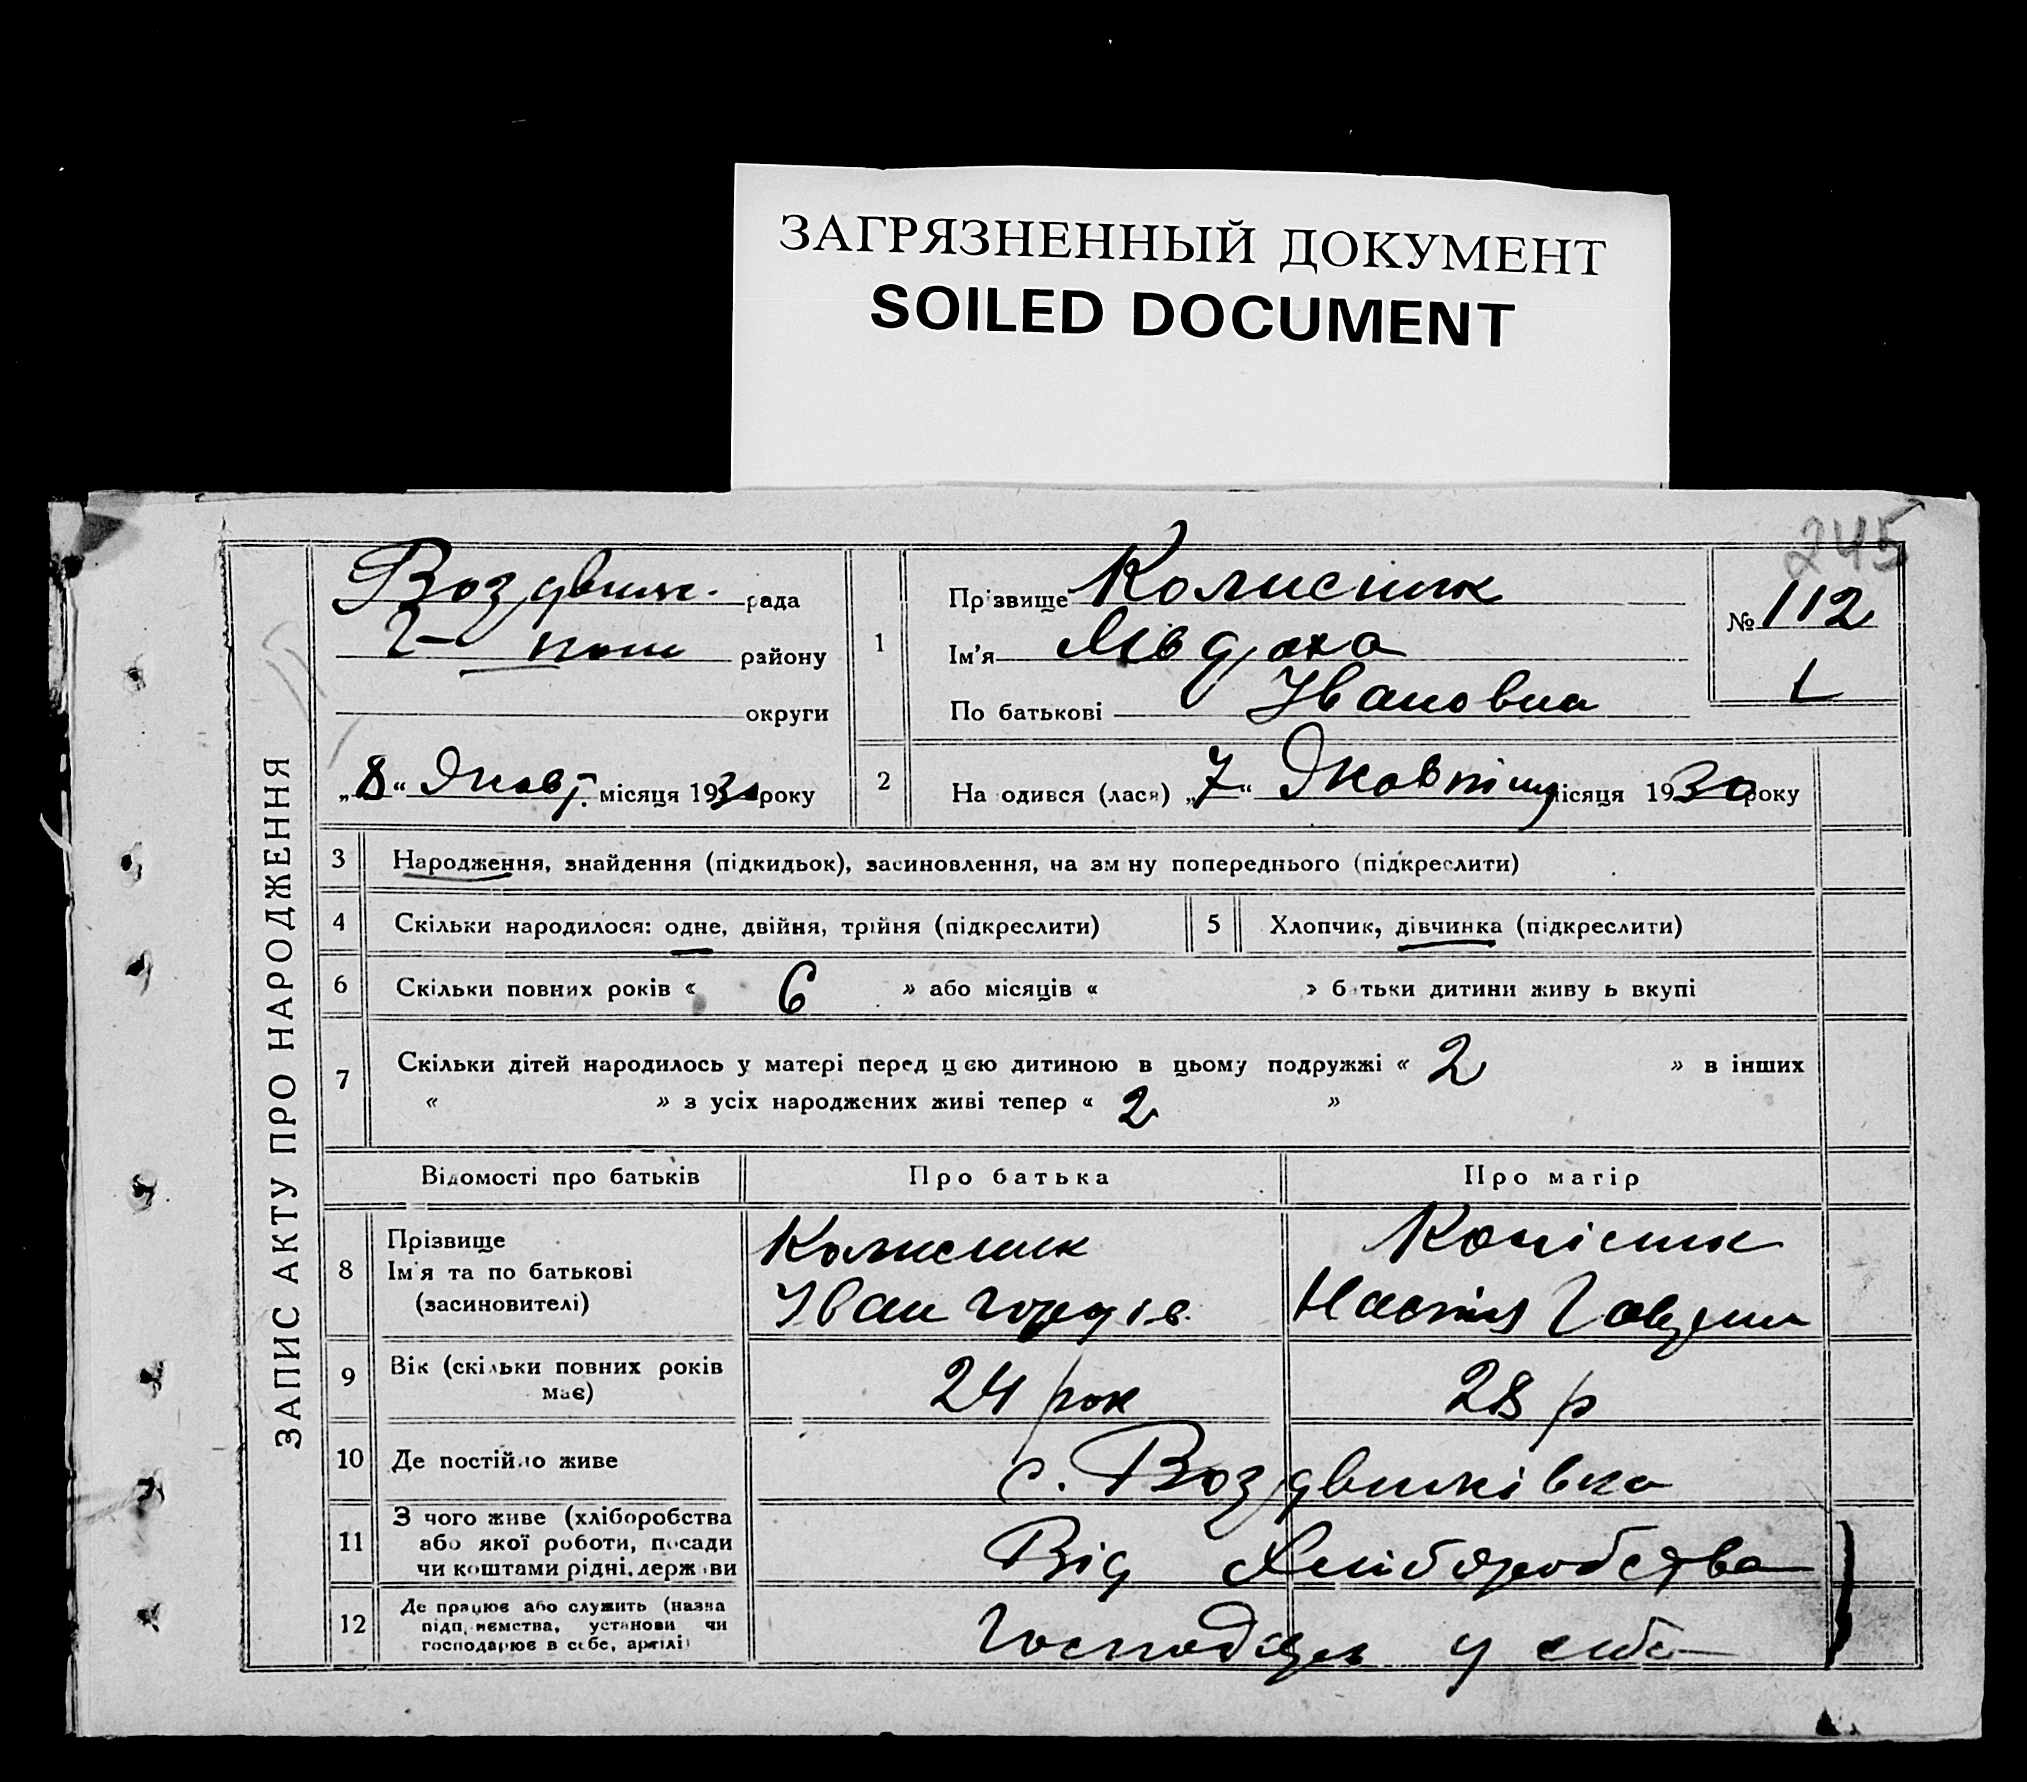 ЗАГРЯЗНЕННЫЙ ДОКУМЕНТ
SOILED DOCUMENT
245
ЗАПИС АКТУ ПРО НАРОДЖЕННЯ
Воздвиж. рада
району
округи
„8“ Жовт. місяця 1930 року
1
Прізвище Колисник
Ім'я Явдоха
По батькові Івановна
№ 112
1
2
Народився (лася) „7“ Жовтня місяця 1930 року
3 Народження, знайдення (підкидьок), засиновлення, на зміну попереднього (підкреслити)
4 Скільки народилося: одне, двійня, трійня (підкреслити)
5 Хлопчик, дівчинка (підкреслити)
6 Скільки повних років « 6 » або місяців « » батьки дитини живуть вкупі
7 Скільки дітей народилось у матері перед цією дитиною в цьому подружжі « 2 » в інших
« » з усіх народжених живі тепер « 2 »
Відомості про батьків Про батька Про матір
8 Прізвище
Ім'я та по батькові
(засиновителі)
Колисник
Іван
Колісник
Настя
9 Вік (скільки повних років
має)
24 рок
28 р
10 Де постійно живе
с. Воздвижівка
11 З чого живе (хліборобства
або якої роботи, посади
чи коштами рідні, держави
Від Хліборобства
12 Де працює або служить (назва
підприємства, установи чи
господарює в себе, артілі)
Господарь у себе